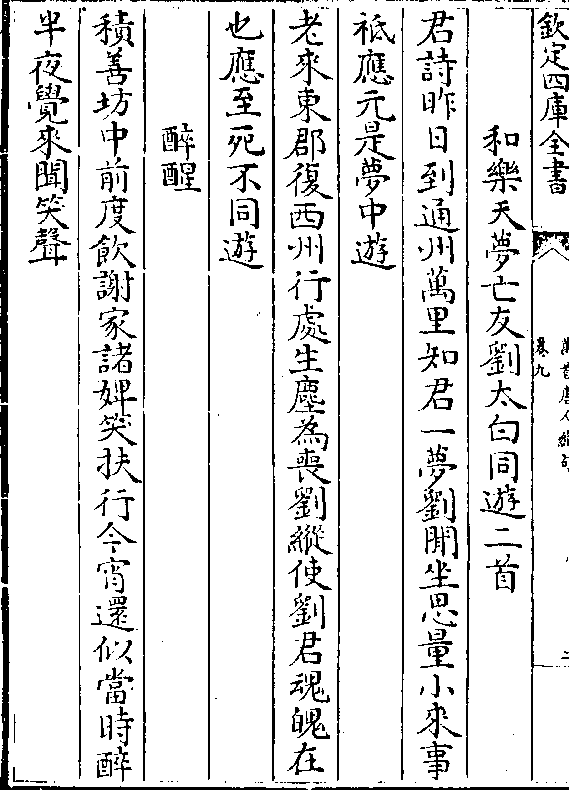 欽定四庫全書
卷九
和樂天夢亡友劉太白同遊二首
君詩昨日到通州萬里知君一夢劉閒坐思量小來事
祇應元是夢中遊
老來東郡復西州行處生塵為喪劉縱使劉君魂魄在
也應至死不同遊
醉醒
積善坊中前度飲謝家諸婢笑扶行今宵還似當時醉
半夜覺來聞笑聲